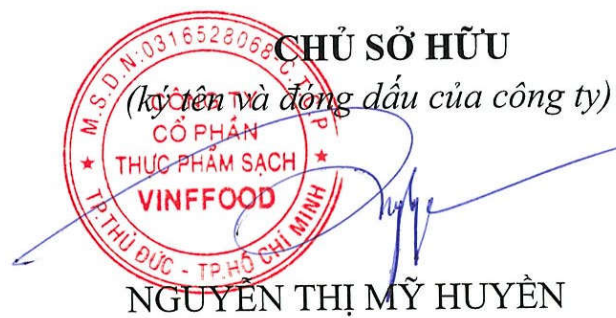 CHỦ SỞ HỮU
(ký tên và đóng dấu của công ty)
M.S.D.N:0316528068-C.T.C.P
CÔNG TY
CỔ PHẦN
THỰC PHẨM SẠCH
VINFFOOD
TP.THỦ ĐỨC - TP.HỒ CHÍ MINH
NGUYỄN THỊ MỸ HUYỀN